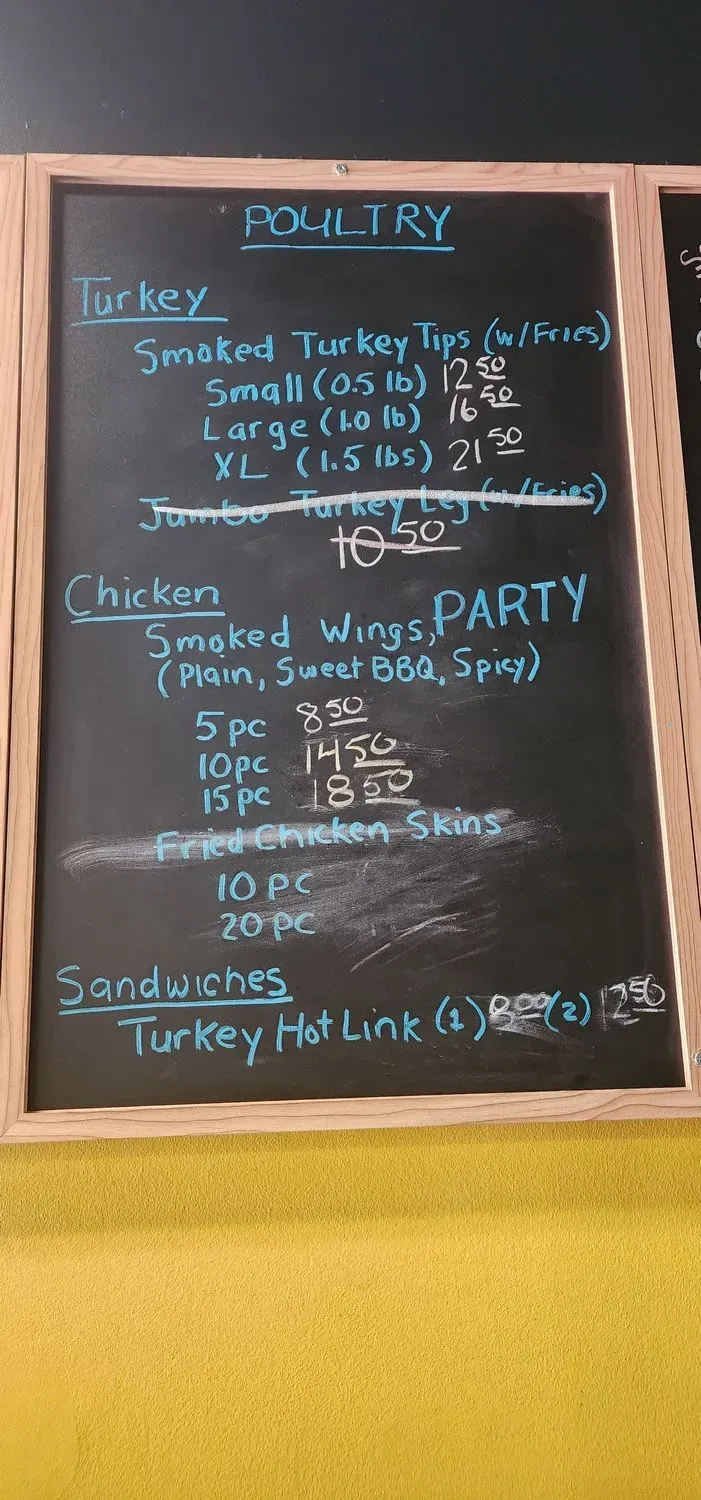 POULTRY
Turkey
Smoked Turkey Tips (w/Fries)
Small (0.5 lb) 12 50
Large (1.0 lb) 16 50
XL (1.5 lbs) 21 50
Jumbo Turkey Leg (w/Fries)
10 50
Chicken
Smoked Wings, PARTY
(Plain, Sweet BBQ, Spicy)
5 pc 8 50
10 pc 14 50
15 pc 18 50
Fried Chicken Skins
10 PC
20 pc
Sandwiches
Turkey Hot Link (1) 8 00 (2) 12 50